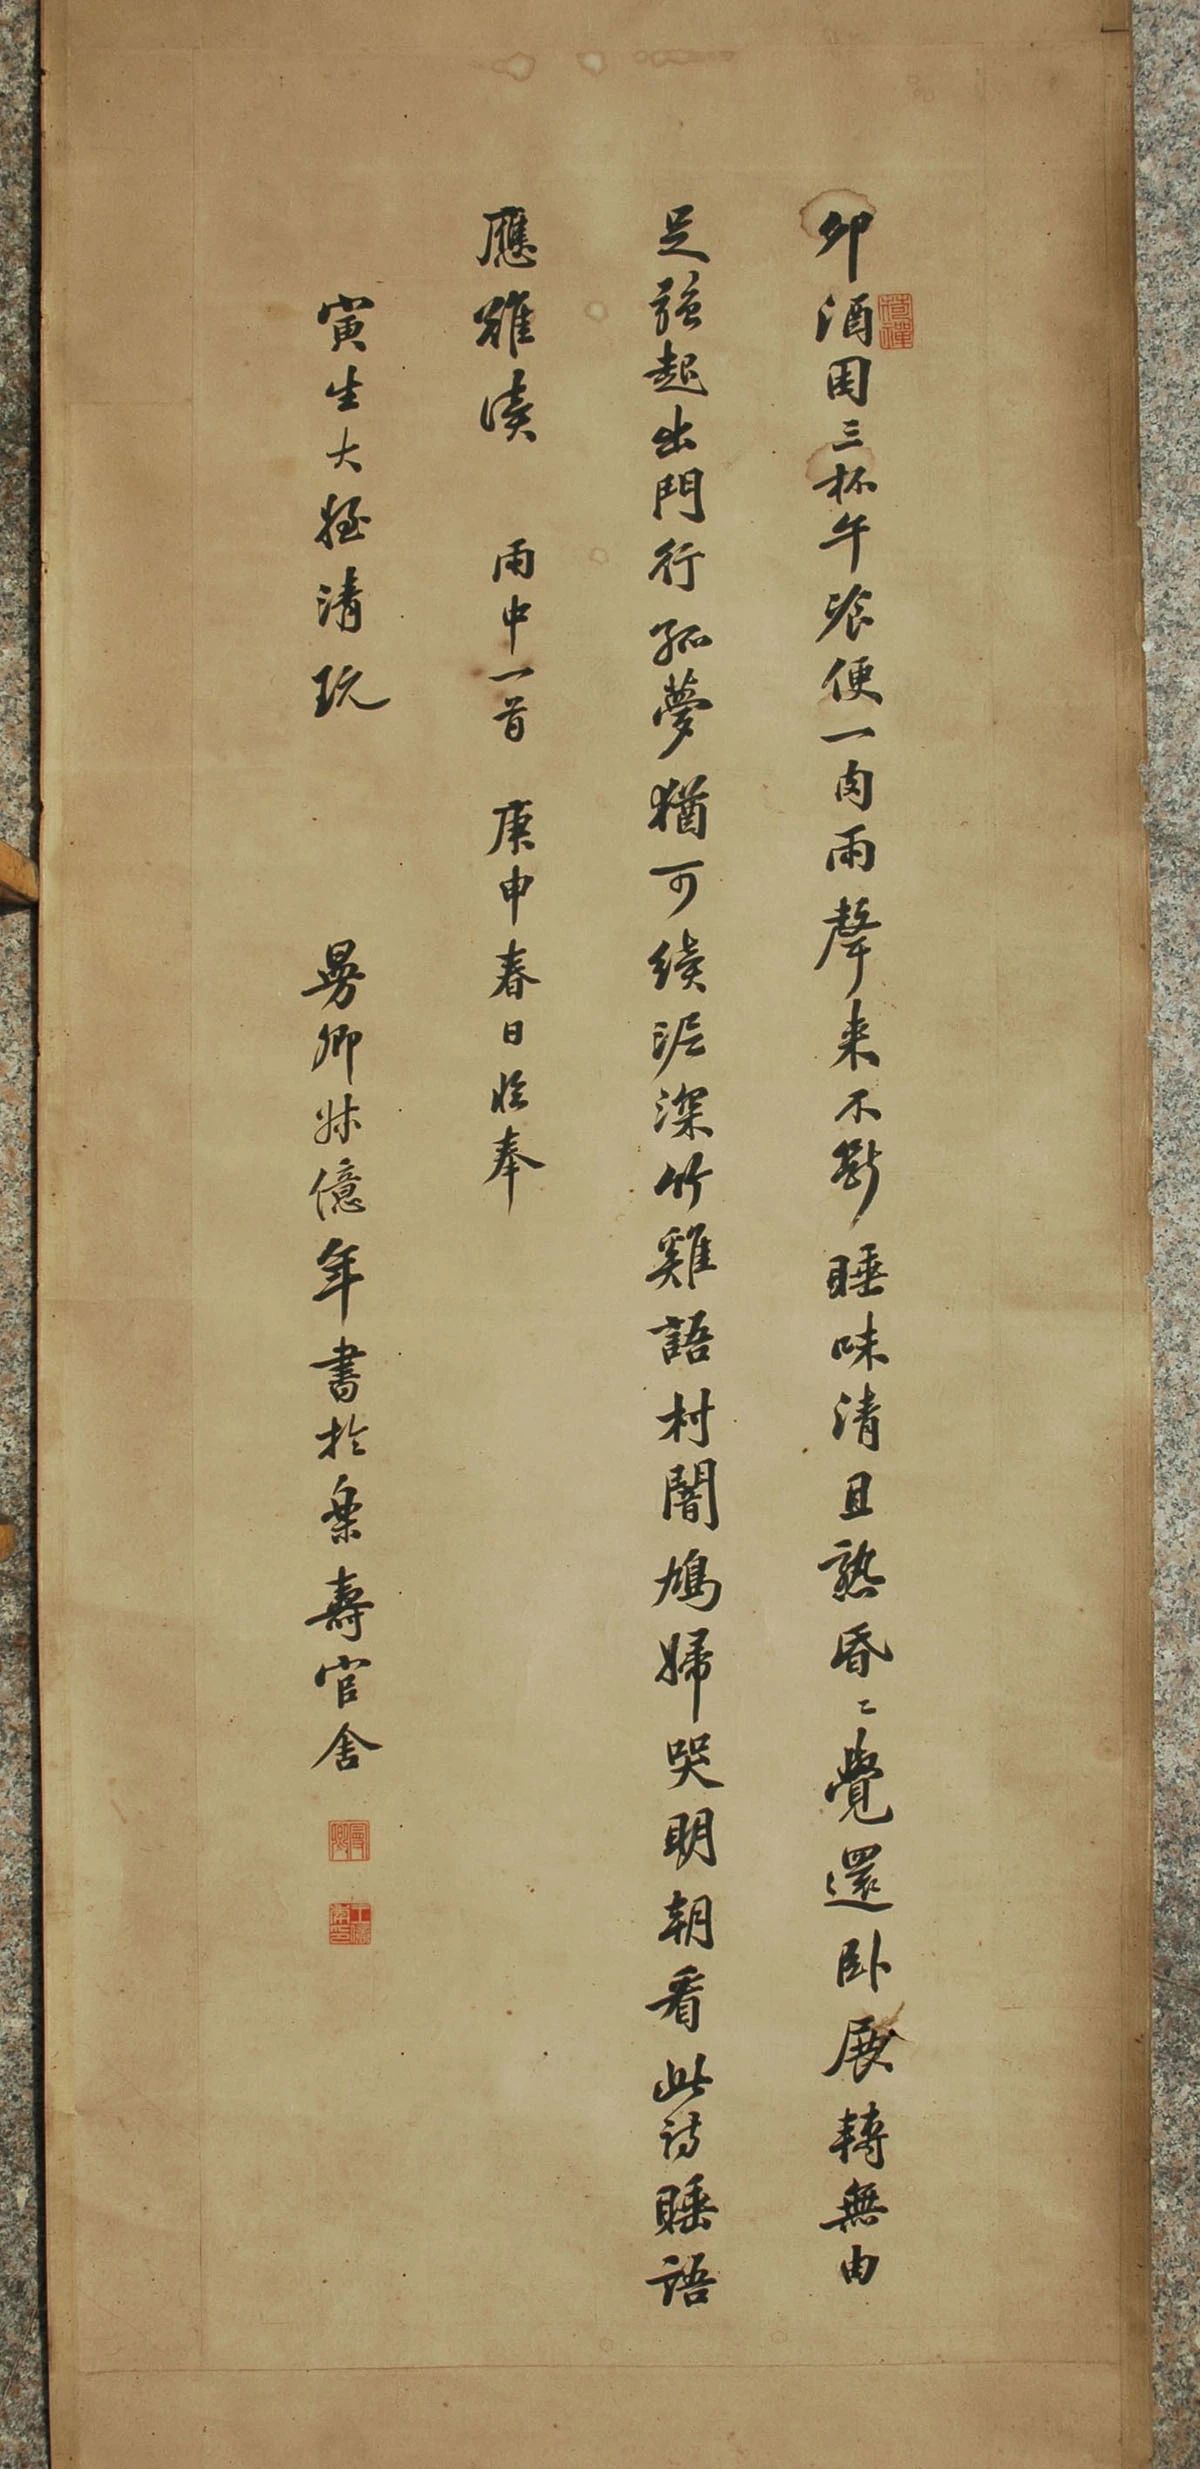 卯酒困三杯午湌便一肉雨聲来不斷睡味清且熟昏〻覺還卧展轉無由
足強起出門行孤夢猶可續泥深竹雞語村闇鳩婦哭明朝看此詩睡語
應難讀 雨中一首 庚申春日臨奉
寅生大姪清玩 曼卿妹億年書於樂壽官舍